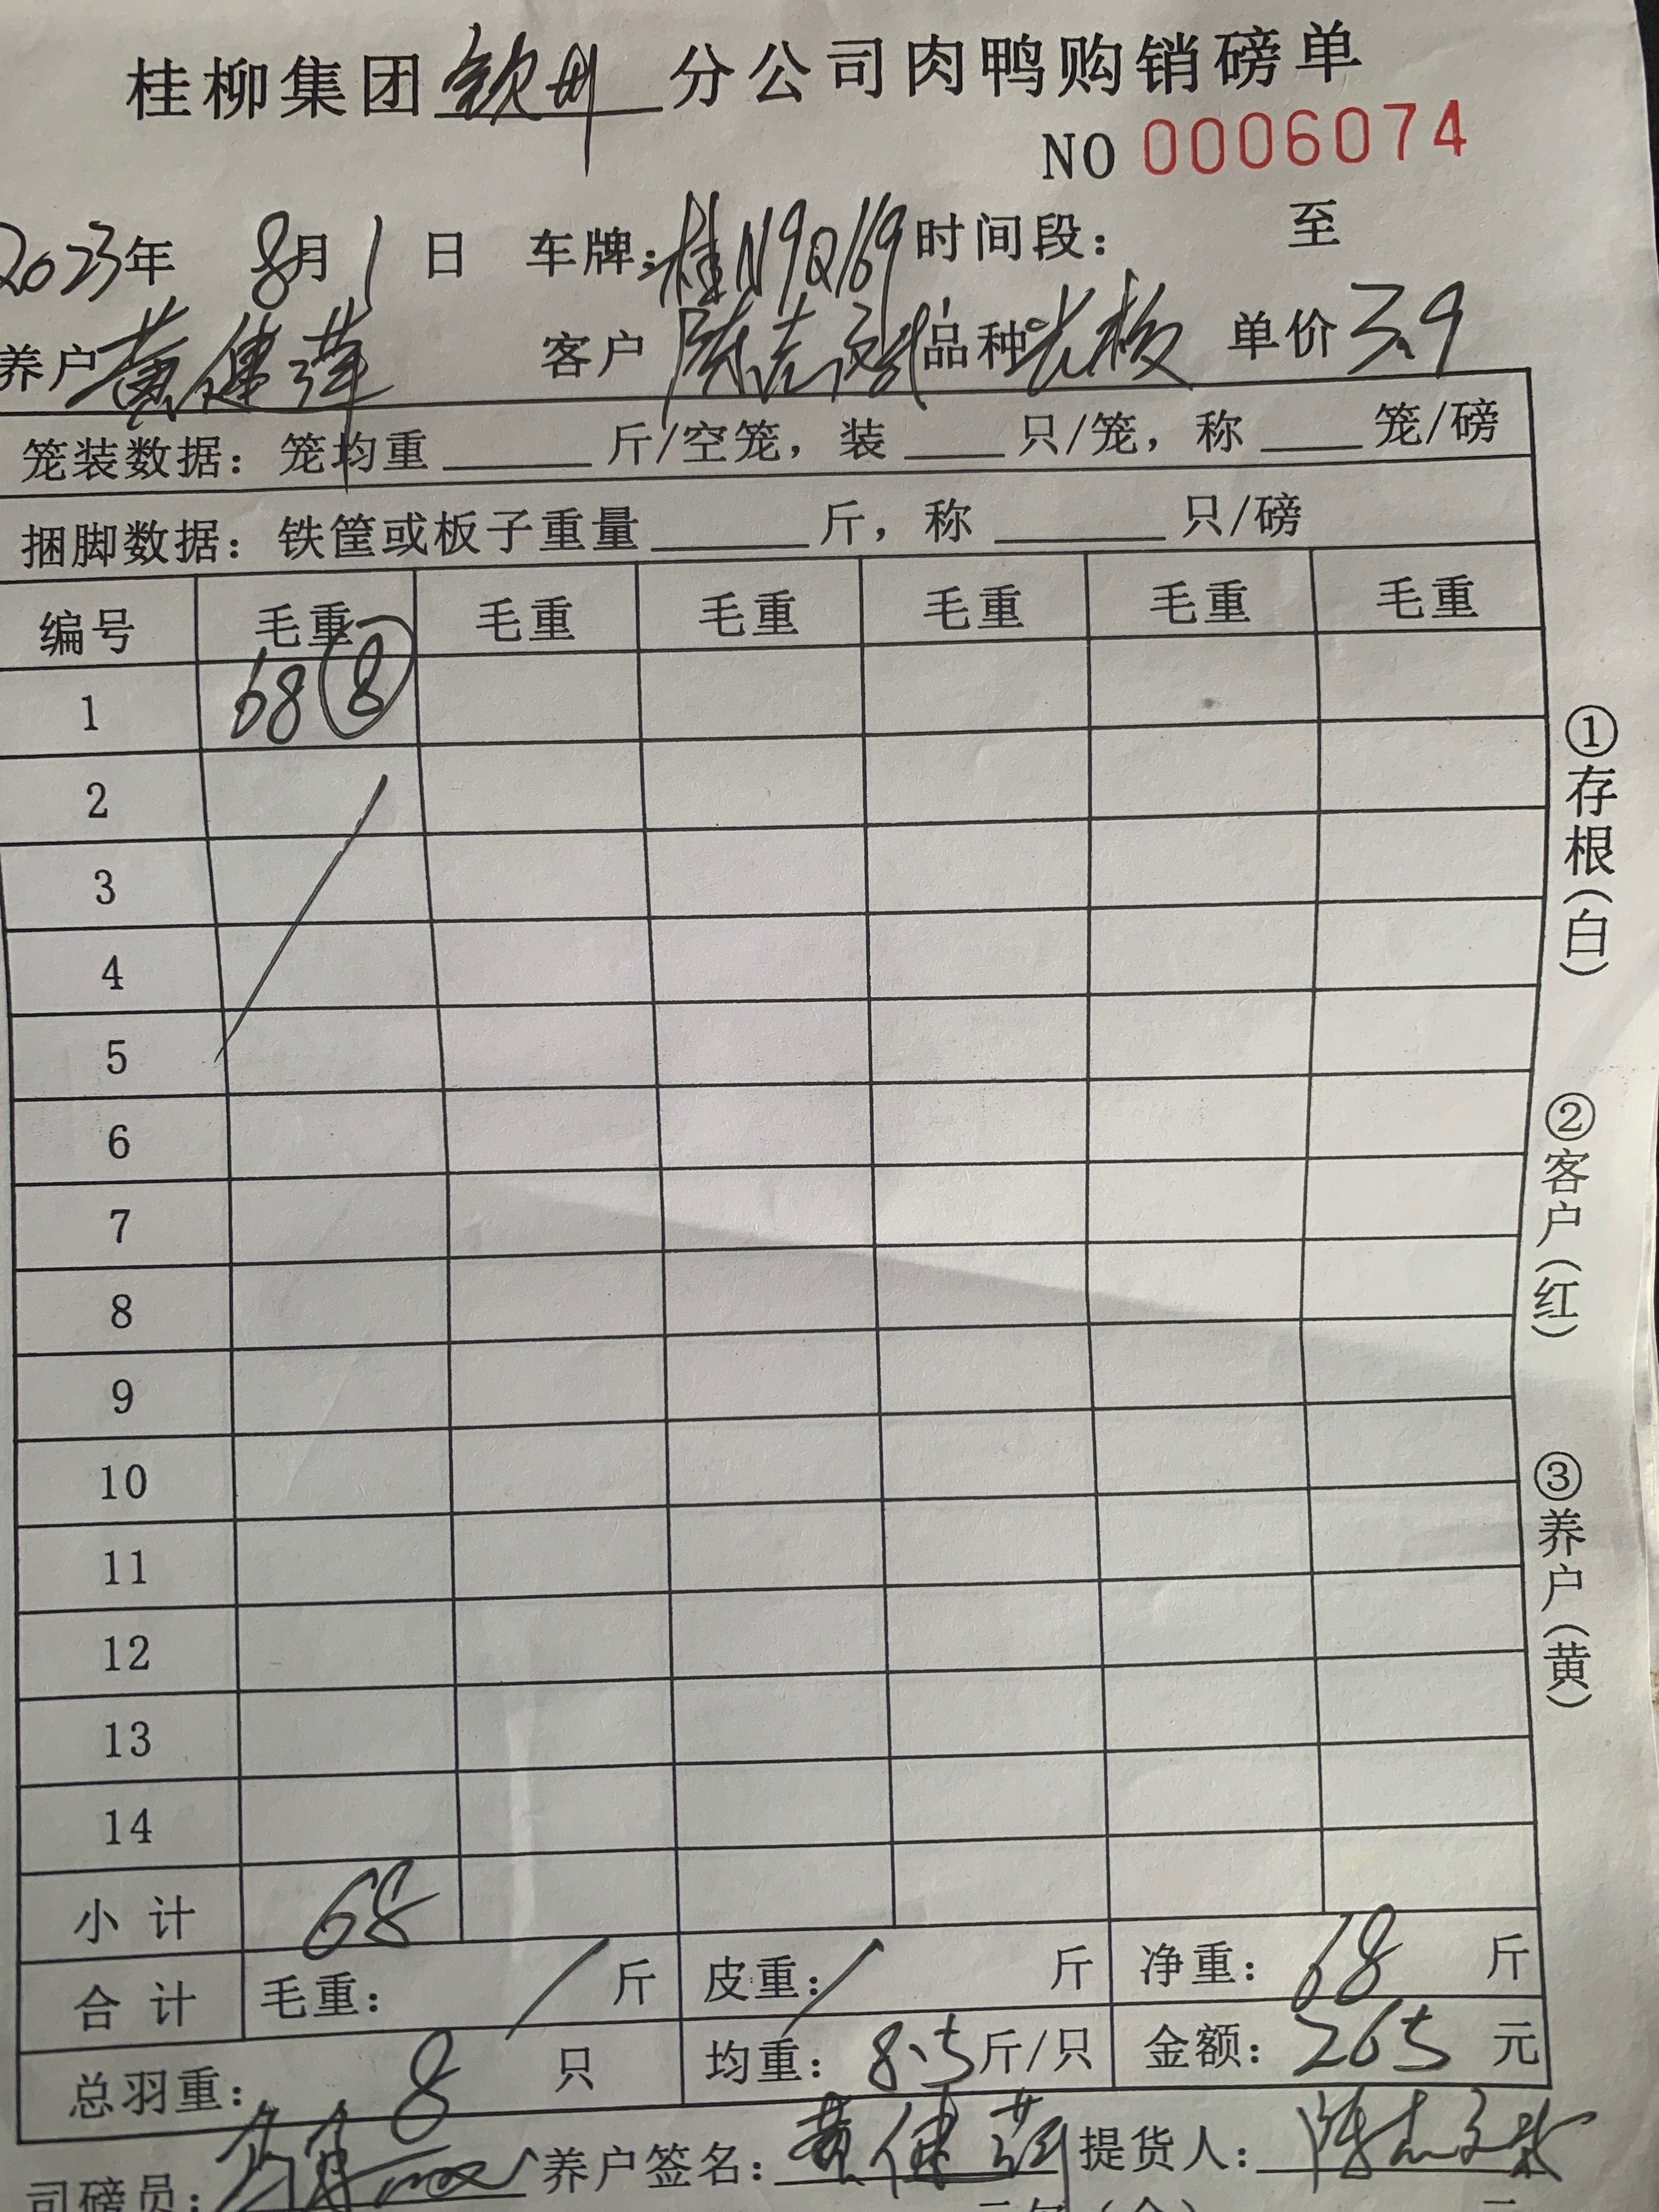 桂柳集团钦州分公司肉鸭购销磅单
NO 0006074
2023年 8月1日 车牌:桂N9Q169 时间段: 至
养户 黄健萍 客户 陈志 品种 光板 单价 3.9
笼装数据: 笼均重 斤/空笼, 装 只/笼, 称 笼/磅
捆脚数据: 铁筐或板子重量 斤, 称 只/磅
编号 毛重 毛重 毛重 毛重 毛重 毛重
1 68 ⑧
2
3
4
5
6
7
8
9
10
11
12
13
14
小计 68
合计 毛重: / 斤 皮重: / 斤 净重: 68 斤
总羽重: 8 只 均重: 8.5 斤/只 金额: 265 元
司磅员: 养户签名: 黄健 提货人: 陈志
①存根(白)
②客户(红)
③养户(黄)